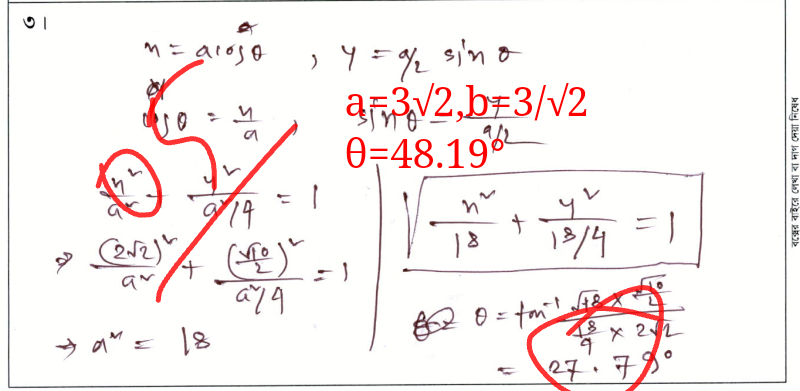 ৩।
x = a cosθ , y = a/2 sinθ
cosθ = x/a , sinθ = y/(a/2)
a=3√2,b=3/√2
θ=48.19°
x²/a² + y²/(a²/4) = 1
⇒ (2√2)²/a² + (√10/2)²/(a²/4) = 1
→ a² = 18
x²/18 + y²/(18/4) = 1
θ = tan⁻¹ (√18 × √10/2)/(18/9 × 2√2)
= 27.79°
বক্সের বাইরে লেখা বা দাগ দেয়া নিষেধ